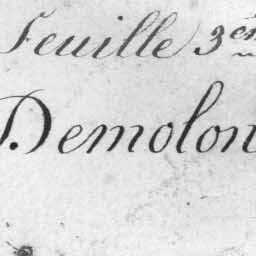 Feuille 3èm
Demolon